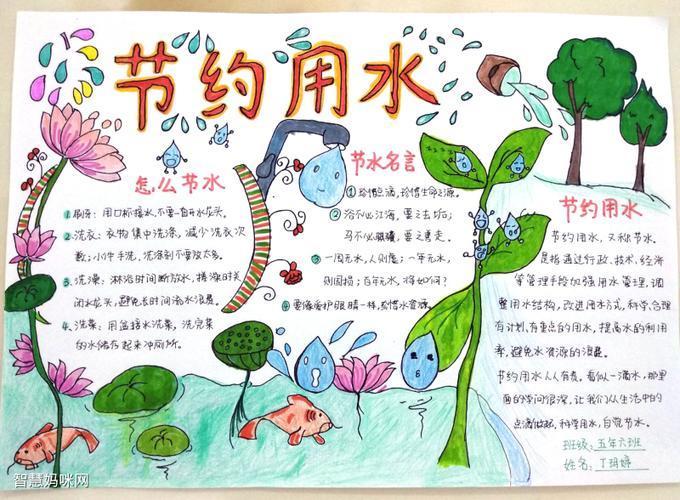 节约用水
怎么节水
1. 刷牙：用口杯接水，不要一直开水龙头。
2. 洗衣：衣物集中洗涤，减少洗衣次
数；小件手洗，洗涤剂不要放太多。
3. 洗澡：淋浴时间断放水，搓澡时关
闭水龙头，避免长时间淋水浪费。
4. 洗菜：用盆接水洗菜，洗完菜
的水储存起来冲厕所。
节水名言
① 珍惜点滴，珍惜生命之源。
② 浴不必江海，要之去垢；
马不必骐骥，要之善走。
③ 一周无水，人则危；一年无水，
则国损；百年无水，将如何？
④ 要像爱护眼睛一样，珍惜水资源。
节约用水
节约用水，又称节水。
是指通过行政、技术、经济
等管理手段加强用水管理，调
整用水结构，改进用水方式，科学、合理
有计划、有重点的用水，提高水的利用
率，避免水资源的浪费。
节约用水人人有责。看似一滴水，那里
面的学问很深，让我们从生活中的
点滴做起，科学用水，自觉节水。
班级：五年六班
姓名：丁玥婷
智慧妈咪网